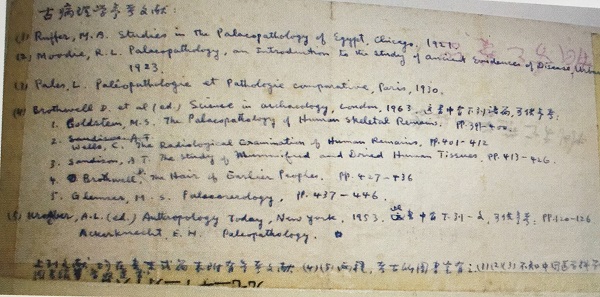 古病理学参考文献:
(1) Ruffer, M.A. Studies in the Palaeopathology of Egypt, Chicago, 1921.
(2) Moodie, R.L. Palaeopathology, an Introduction to the study of ancient Evidences of Disease, Urbana
1923.
(3) Pales, L. Paléopathologie et Pathologie comparative, Paris, 1930.
(4) Brothwell D. et al (ed.) Science in archaeology, London, 1963. 这书中有下列诸篇,可供参考:
1. Goldstein, M.S. The Palaeopathology of Human Skeletal Remains. pp. 391-400.
2. Sandison, A.T.
Wells, C. The Radiological Examination of Human Remains, pp. 401-412
3. Sandison, A.T. The Study of Mummified and Dried Human Tissues. pp. 413-426.
4. Brothwell, The Hair of Earlier Peoples. pp. 427-436
5. M.S. Palaeoserology, pp. 437-446.
(5) Kroeber, A.L. (ed.) Anthropology Today, New York, 1953. 这书中有下列一文,可供参考: pp. 120-126
Ackerknecht, E.H. Paleopathology.
上列文献, (2) 参考文献 (4)(5) 两种, 考古所图书室有; (1)(2)(3) 不知中国医